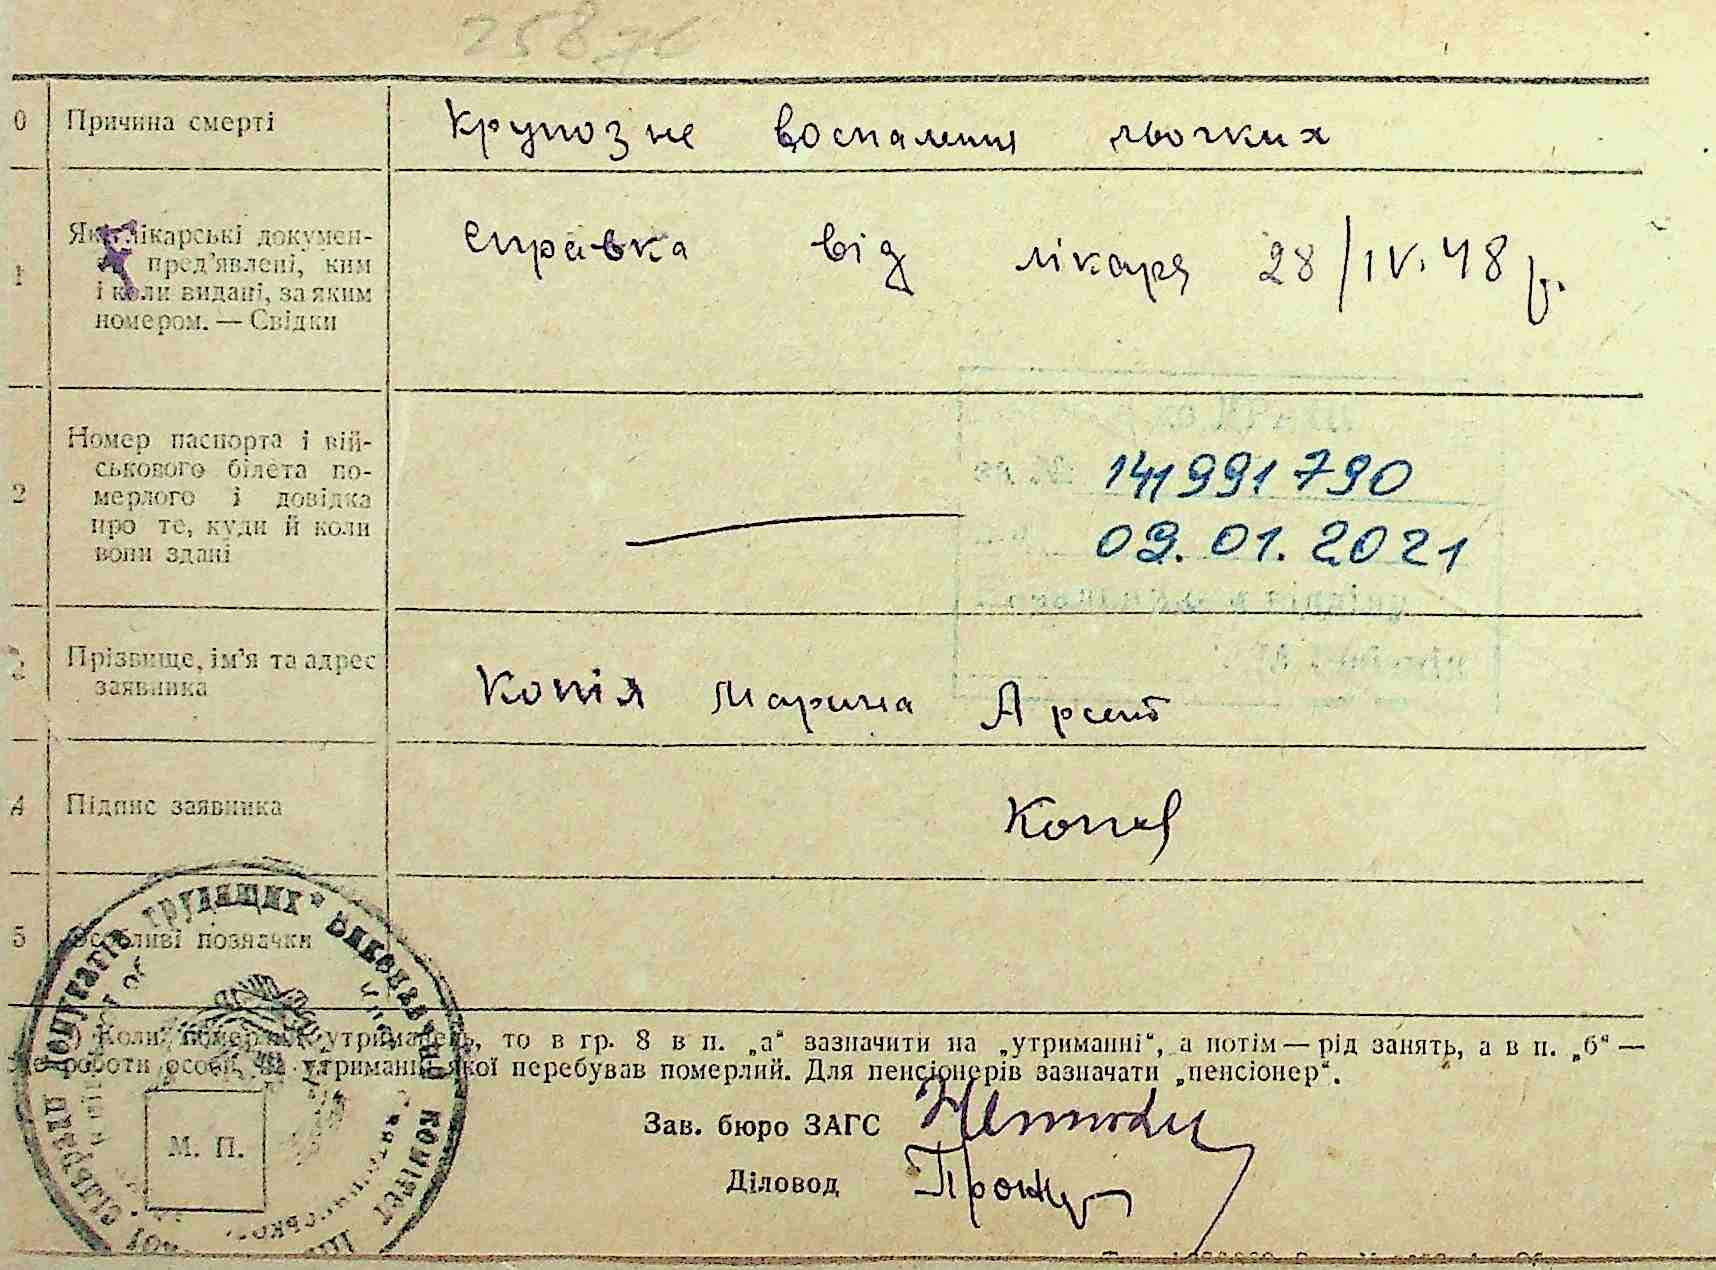 258 зс
0 Причина смерті Крупозне воспаления льогких
Які лікарські докумен-
ти пред'явлені, ким
1 і коли видані, за яким
номером. — Свідки
справка від лікаря 28/IV.48 р.
Номер паспорта і вій-
ськового білета по-
2 мерлого і довідка
про те, куди й коли
вони здані
141991790
09.01.2021
3 Прізвище, ім'я та адрес
заявника
Копія Марина Арсент
4 Підпис заявника Копія
5 Особливі позначки
*) Коли померлий утриманець, то в гр. 8 в п. „а“ зазначити на „утриманні“, а потім — рід занять, а в п. „б“ —
роботи особи, на утриманні якої перебував померлий. Для пенсіонерів зазначати „пенсіонер“.
Зав. бюро ЗАГС
Діловод
М. П.
депутатів трудящих * Виконавчий комітет